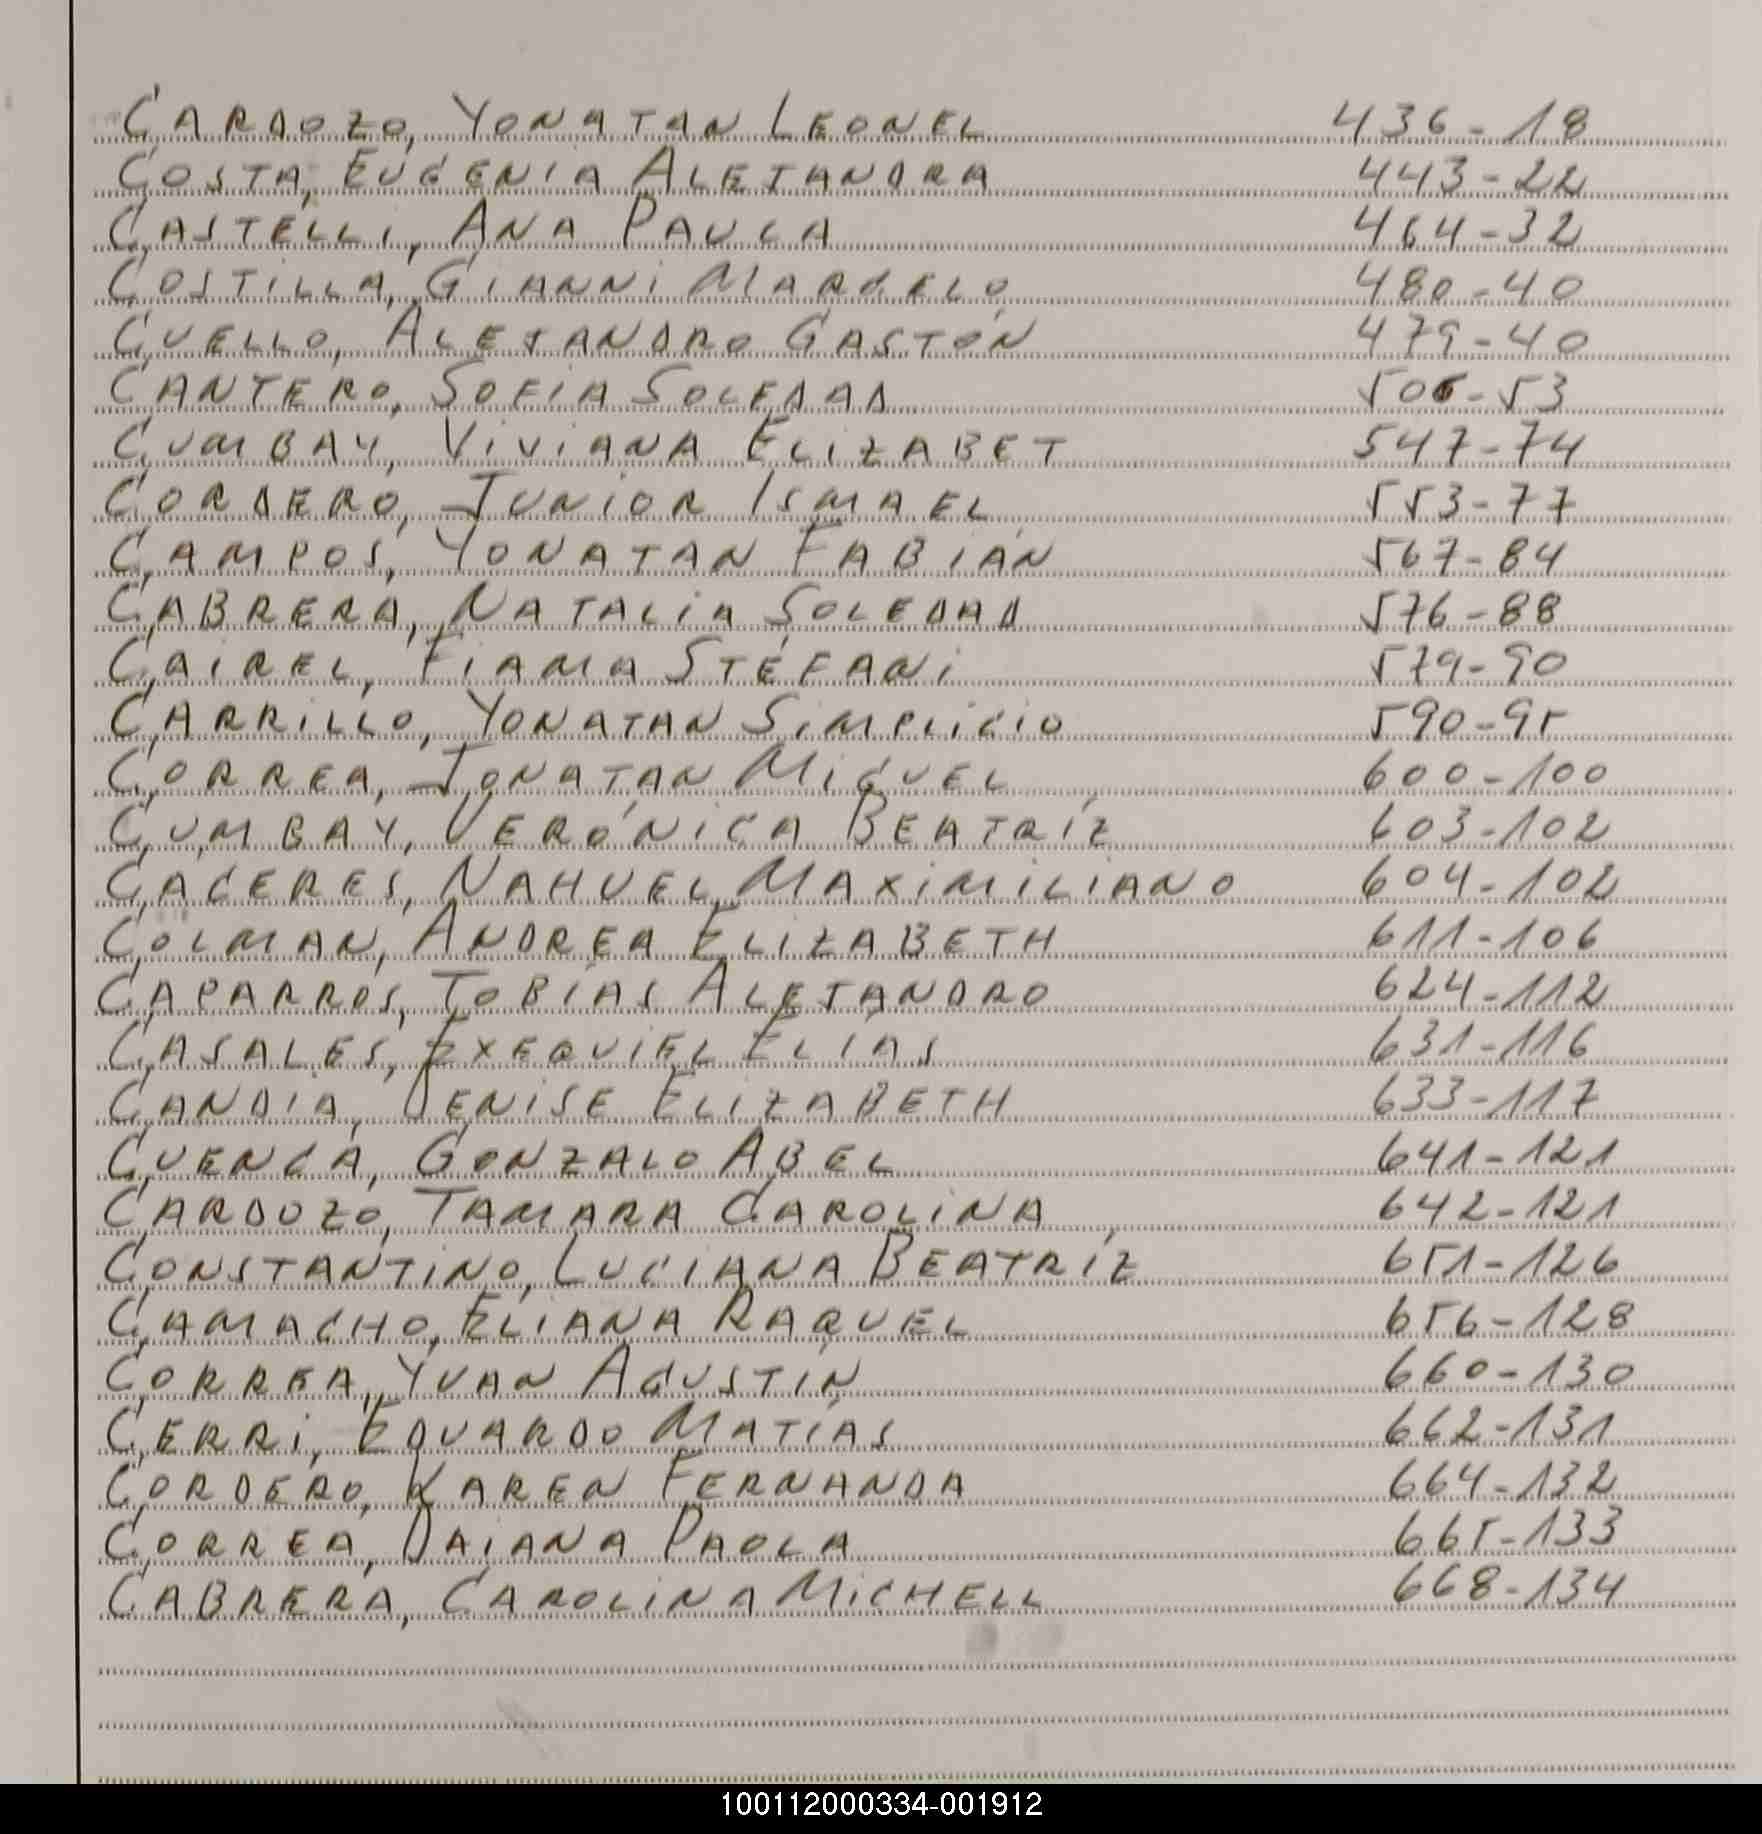 CARDOZO, YONATAN LEONEL 436-18
COSTA, EUGENIA ALEJANDRA 443-22
CASTELLI, ANA PAULA 464-32
COSTILLA, GIANNI MARCELO 480-40
CUELLO, ALEJANDRO GASTÓN 479-40
CANTERO, SOFIA SOLEDAD 506-53
CUMBAY, VIVIANA ELIZABET 547-74
CORDERO, JUNIOR ISMAEL 553-77
CAMPOS, YONATAN FABIÁN 567-84
CABRERA, NATALIA SOLEDAD 576-88
CAIREL, FIAMA STÉFANI 579-90
CARRILLO, YONATAN SIMPLICIO 590-95
CORREA, JONATAN MIGUEL 600-100
CUMBAY, VERÓNICA BEATRÍZ 603-102
CACERES, NAHUEL MAXIMILIANO 604-102
COLMAN, ANDREA ELIZABETH 611-106
CAPARROS, TOBÍAS ALEJANDRO 624-112
CASALES, EXEQUIEL ELÍAS 631-116
CANDIA, DENISE ELIZABETH 633-117
CUENCA, GONZALO ABEL 641-121
CARDOZO, TAMARA CAROLINA 642-121
CONSTANTINO, LUCIANA BEATRÍZ 651-126
CAMACHO, ELIANA RAQUEL 656-128
CORREA, YVAN AGUSTÍN 660-130
CERRI, EDUARDO MATÍAS 662-131
CORDERO, KAREN FERNANDA 664-132
CORREA, DAIANA PAOLA 665-133
CABRERA, CAROLINA MICHELL 668-134
100112000334-001912